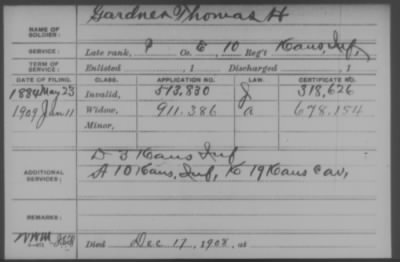 NAME OF SOLDIER: Gardner Thomas H
SERVICE: Late rank, P Co. E, 10 Reg't Kans, Inf,
TERM OF SERVICE: Enlisted , 1 Discharged , 1
DATE OF FILING. CLASS. APPLICATION NO. LAW. CERTIFICATE NO.
1884 May 23 Invalid, 513,830 J 318,626
1909 Jan 11 Widow, 911.386 a 678.154
Minor,
D 3 Kans Inf
ADDITIONAL SERVICES: A 10 Kans, Inf, K 19 Kans Cav,
REMARKS:
Died Dec 17, 1908, at